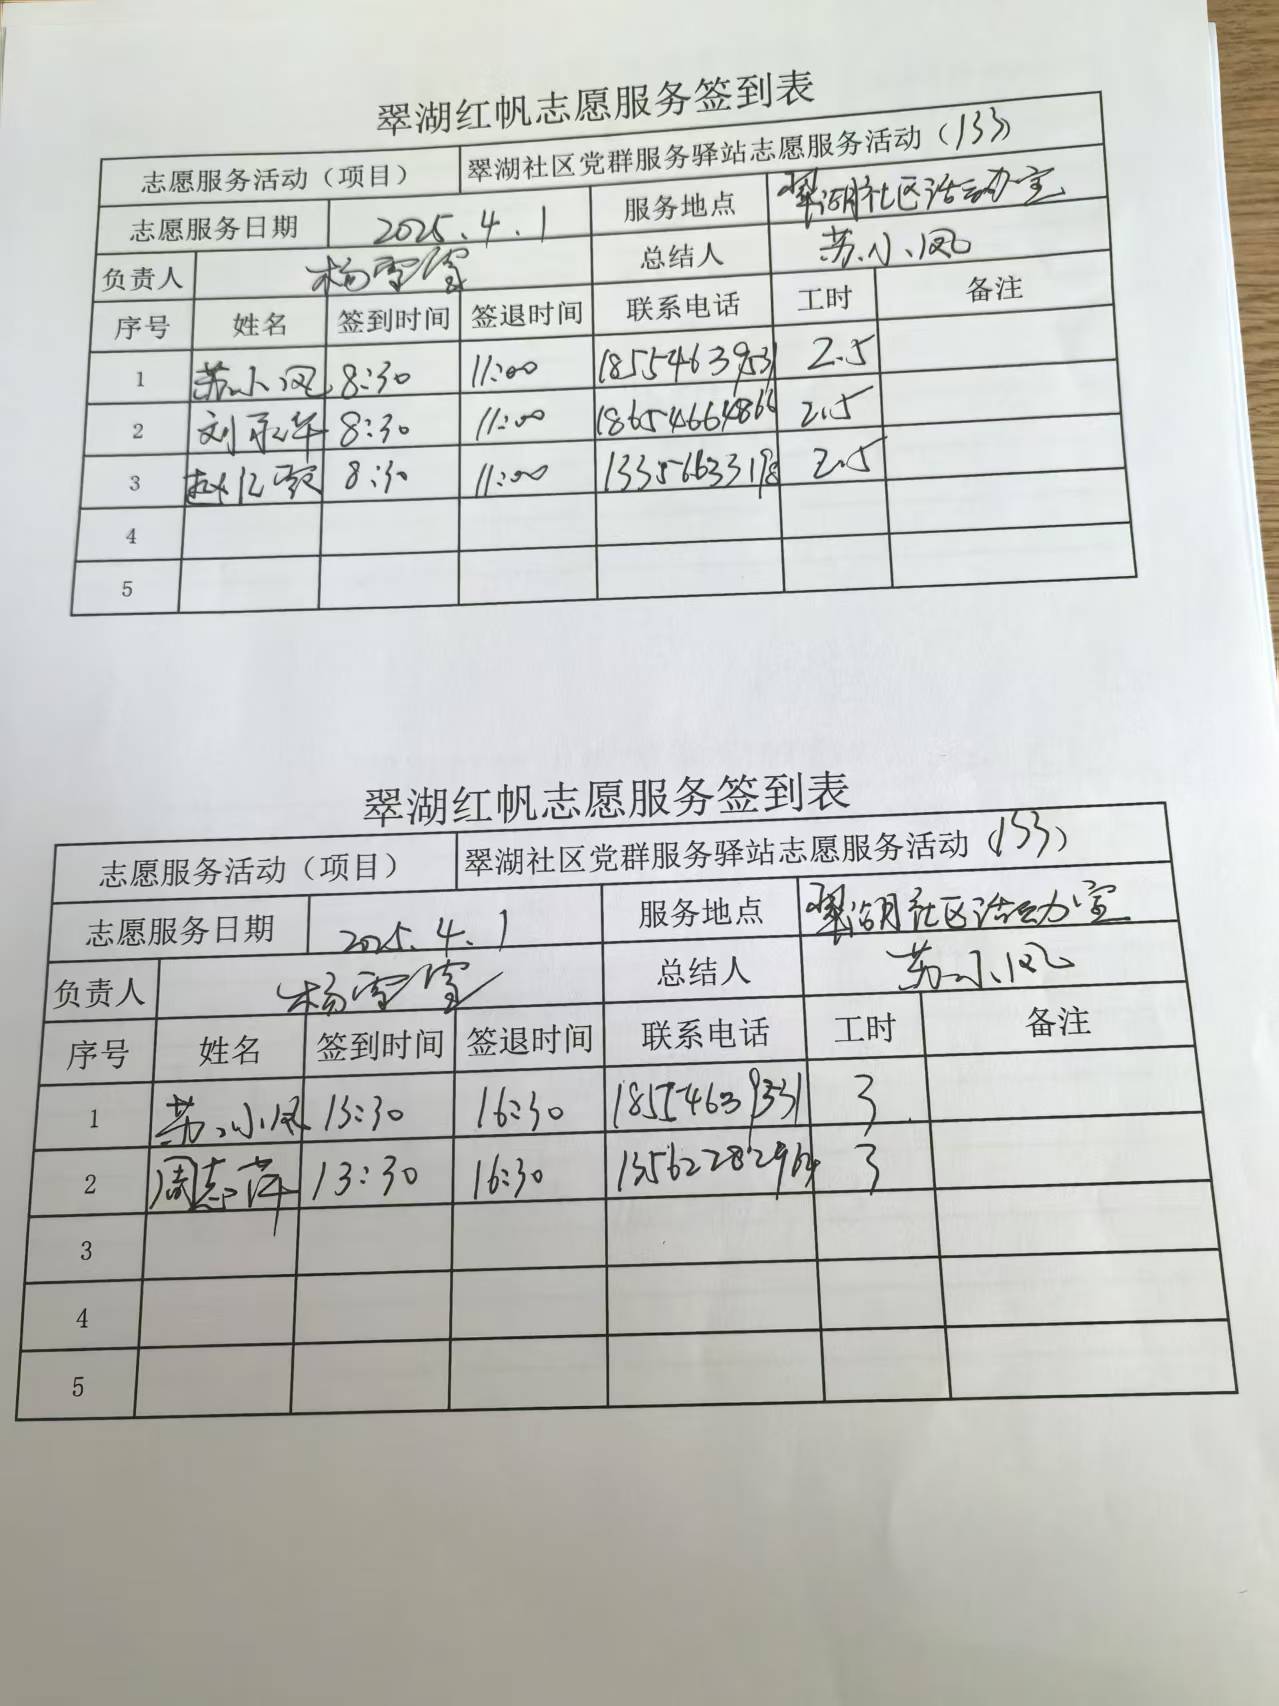 翠湖红帆志愿服务签到表
志愿服务活动（项目） 翠湖社区党群服务驿站志愿服务活动（133）
志愿服务日期 2025.4.1 服务地点 翠湖社区活动办室
负责人 杨雪莹 总结人 苏小凤
序号 姓名 签到时间 签退时间 联系电话 工时 备注
1 苏小凤 8:30 11:00 18554639531 2.5
2 刘永华 8:30 11:00 18654664866 2.5
3 赵 8:30 11:00 13356633198 2.5
4
5
翠湖红帆志愿服务签到表
志愿服务活动（项目） 翠湖社区党群服务驿站志愿服务活动（133）
志愿服务日期 2025.4.1 服务地点 翠湖社区活动办室
负责人 杨雪莹 总结人 苏小凤
序号 姓名 签到时间 签退时间 联系电话 工时 备注
1 苏小凤 13:30 16:30 18554639531 3
2 周志萍 13:30 16:30 13562282964 3
3
4
5